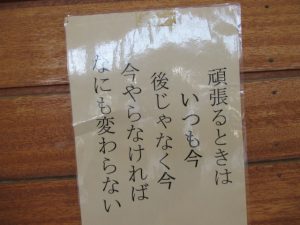 頑張るときは
いつも今
後じゃなく今
今やらなければ
なにも変わらない